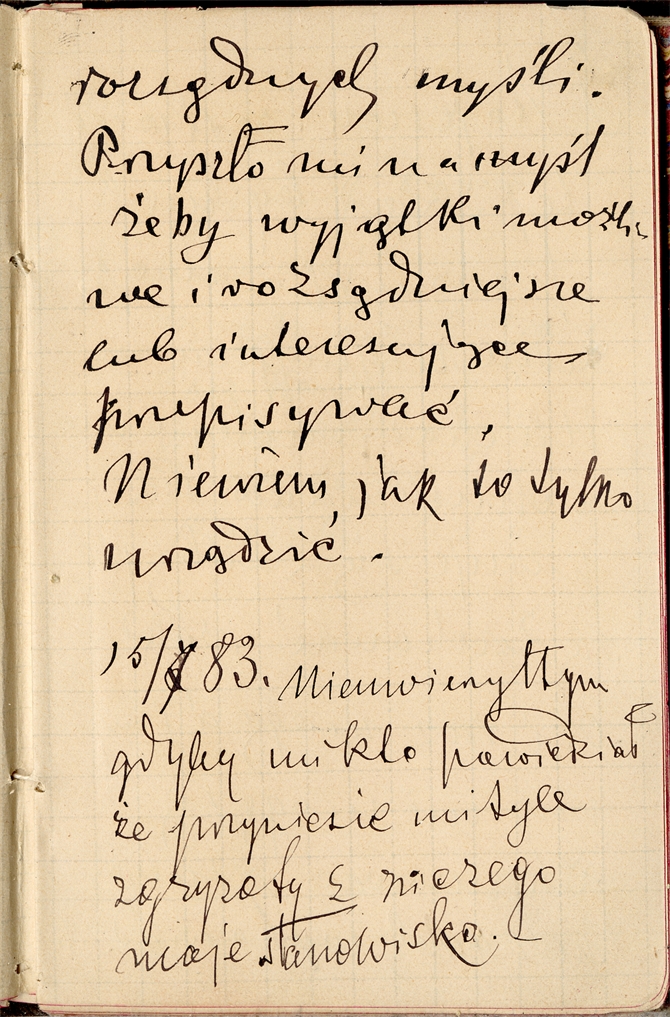 rozsądnych myśli.
Przyszło mi na myśl
żeby wyjątki możli-
we i rozsądniejsze
lub interesujące
przepisywać,
Niewiem, jak to tylko
urządzić.
15/ 83. Nieuwierzyłbym
gdyby mi kto powiedział
że przyniesie mi tyle
zgryzoty z niczego
moje stanowisko.